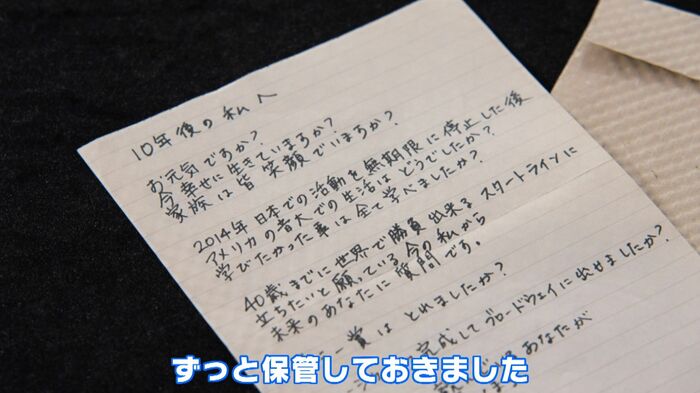 10年後の私へ
お元気ですか?
今幸せに生きていますか?
家族は皆笑顔でいますか?
2014年日本での活動を無期限に停止した後
アメリカの音大での生活はどうでしたか?
学びたかった事は全て学べましたか?
40歳までに世界で勝負出来るスタートラインに
立ちたいと願っている今の私から
未来のあなたに質問です。
ー賞はとれましたか?
完成してブロードウェイに出せましたか?
あなたが
ずっと保管しておきました